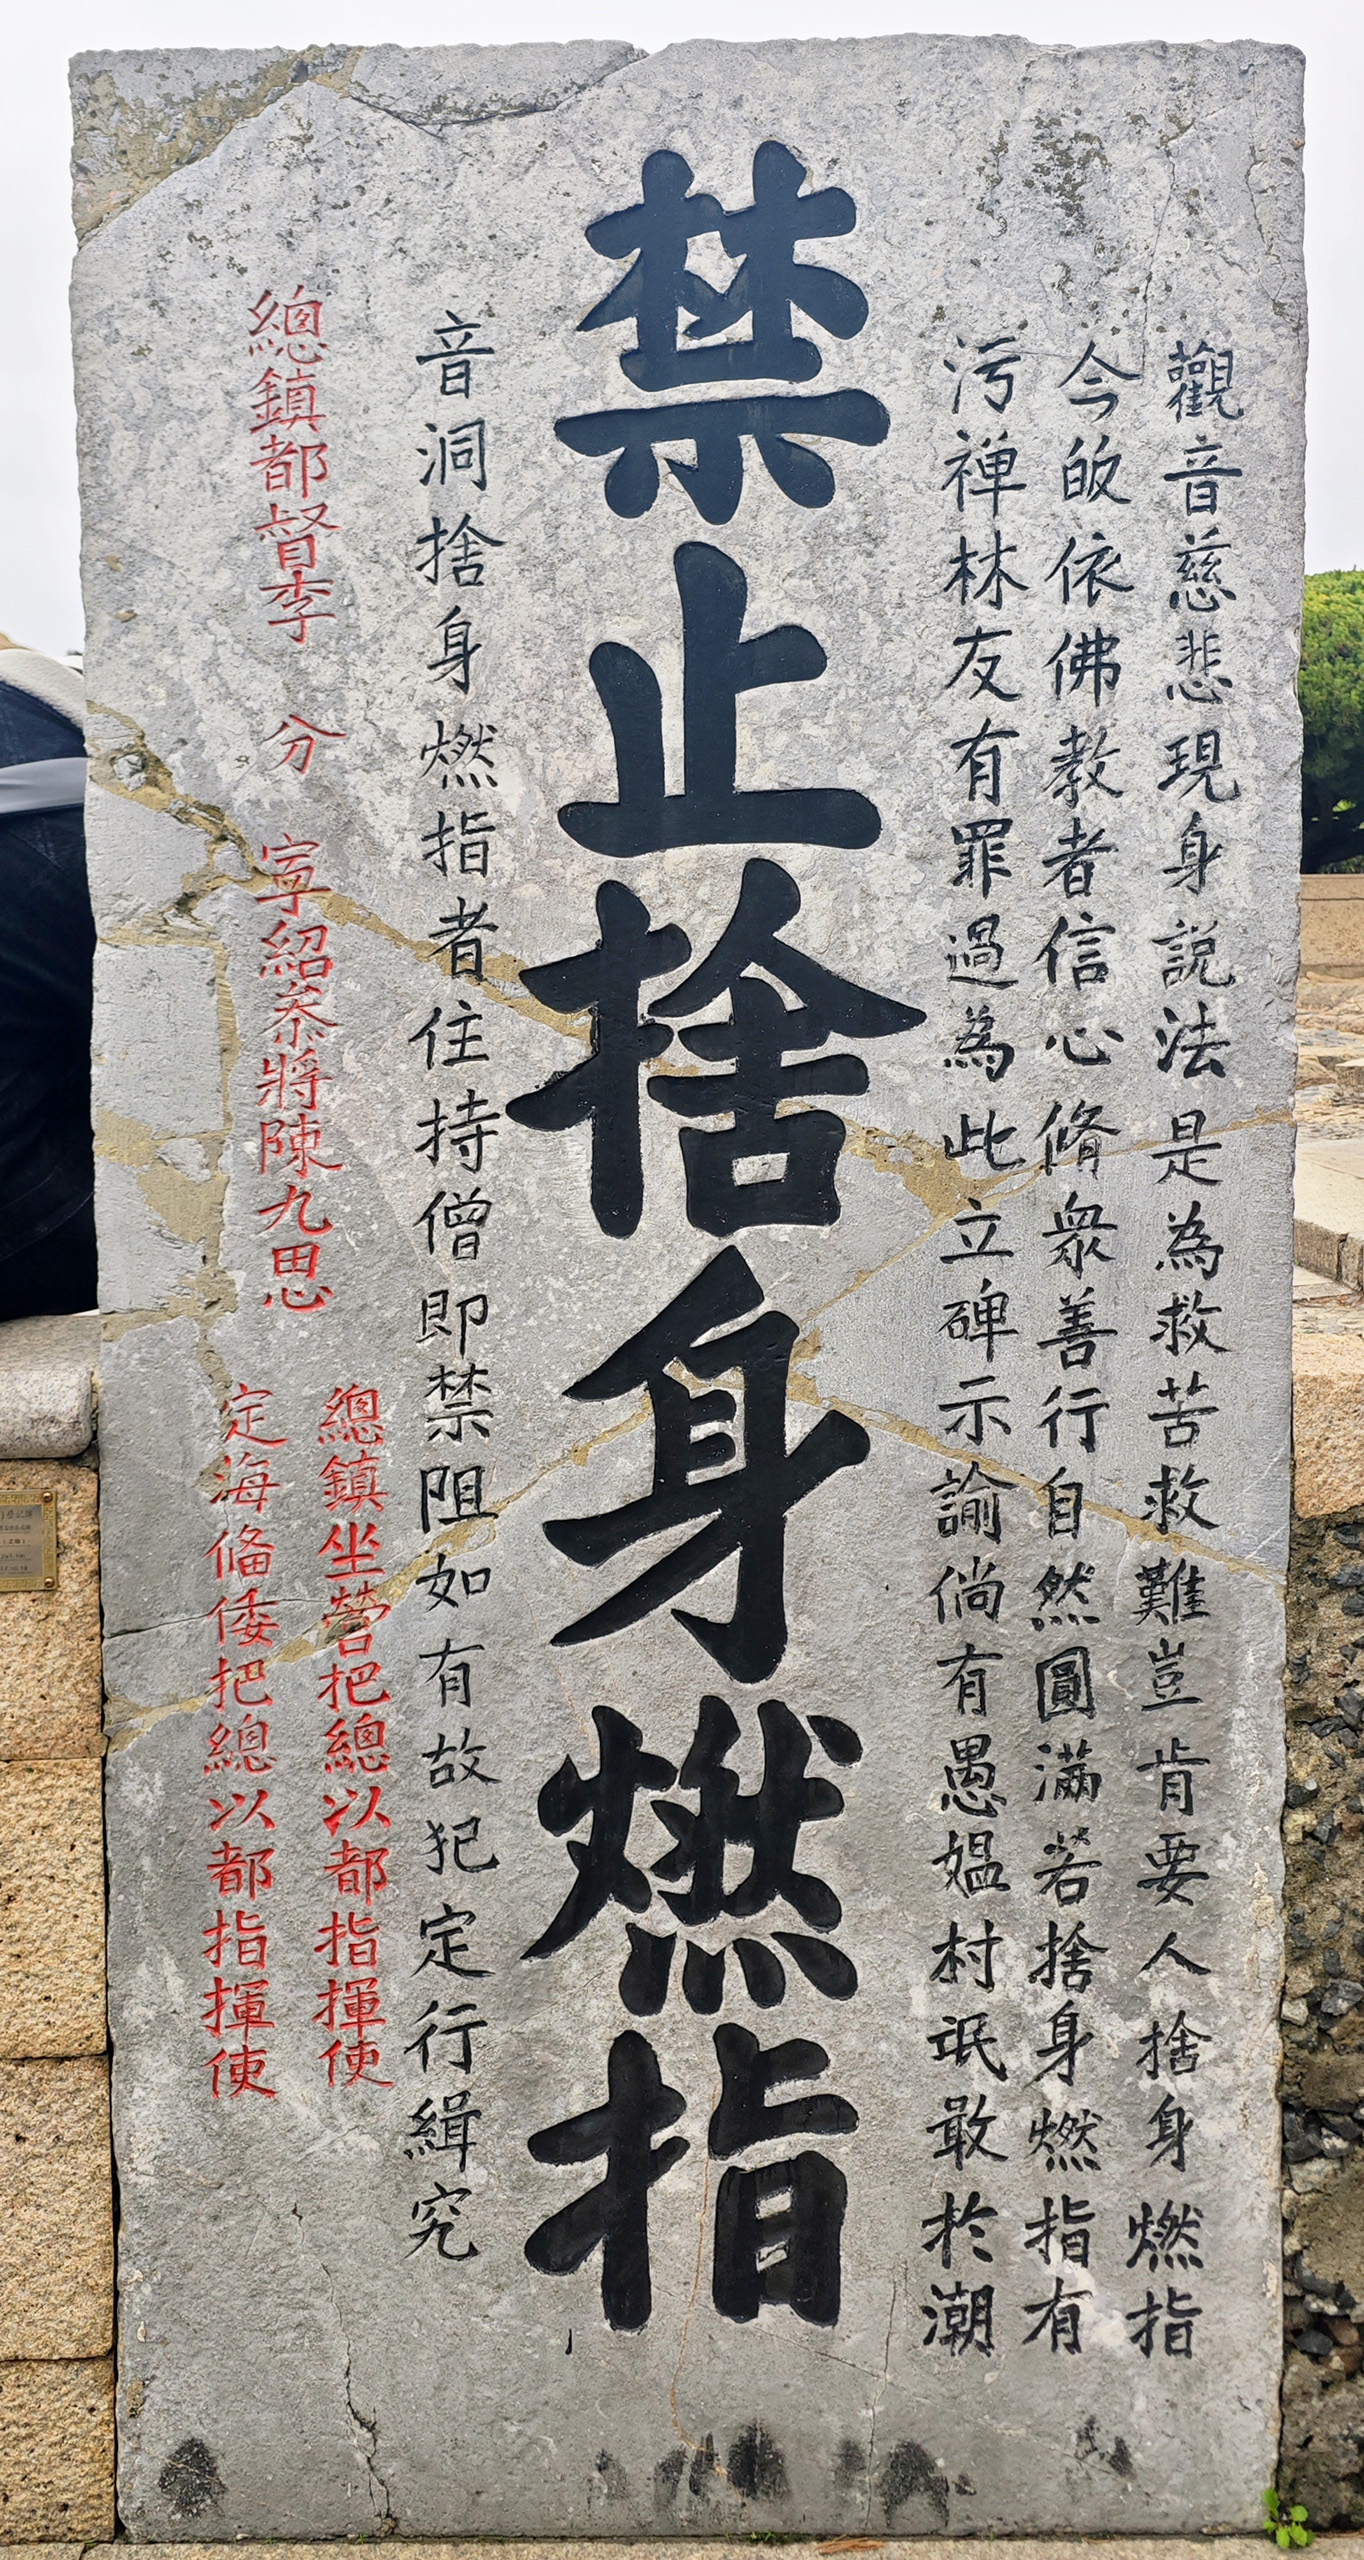 觀音慈悲現身説法是為救苦救難豈肯要人捨身燃指
今皈依佛教者信心脩衆善行自然圓滿若捨身燃指有
污禅林友有罪過為此立碑示諭倘有愚媪村氓敢於潮
禁止捨身燃指
音洞捨身燃指者住持僧即禁阻如有故犯定行緝究
總鎮都督李 分 寜紹叅將陳九思
總鎮坐營把總以都指揮使
定海俻倭把總以都指揮使